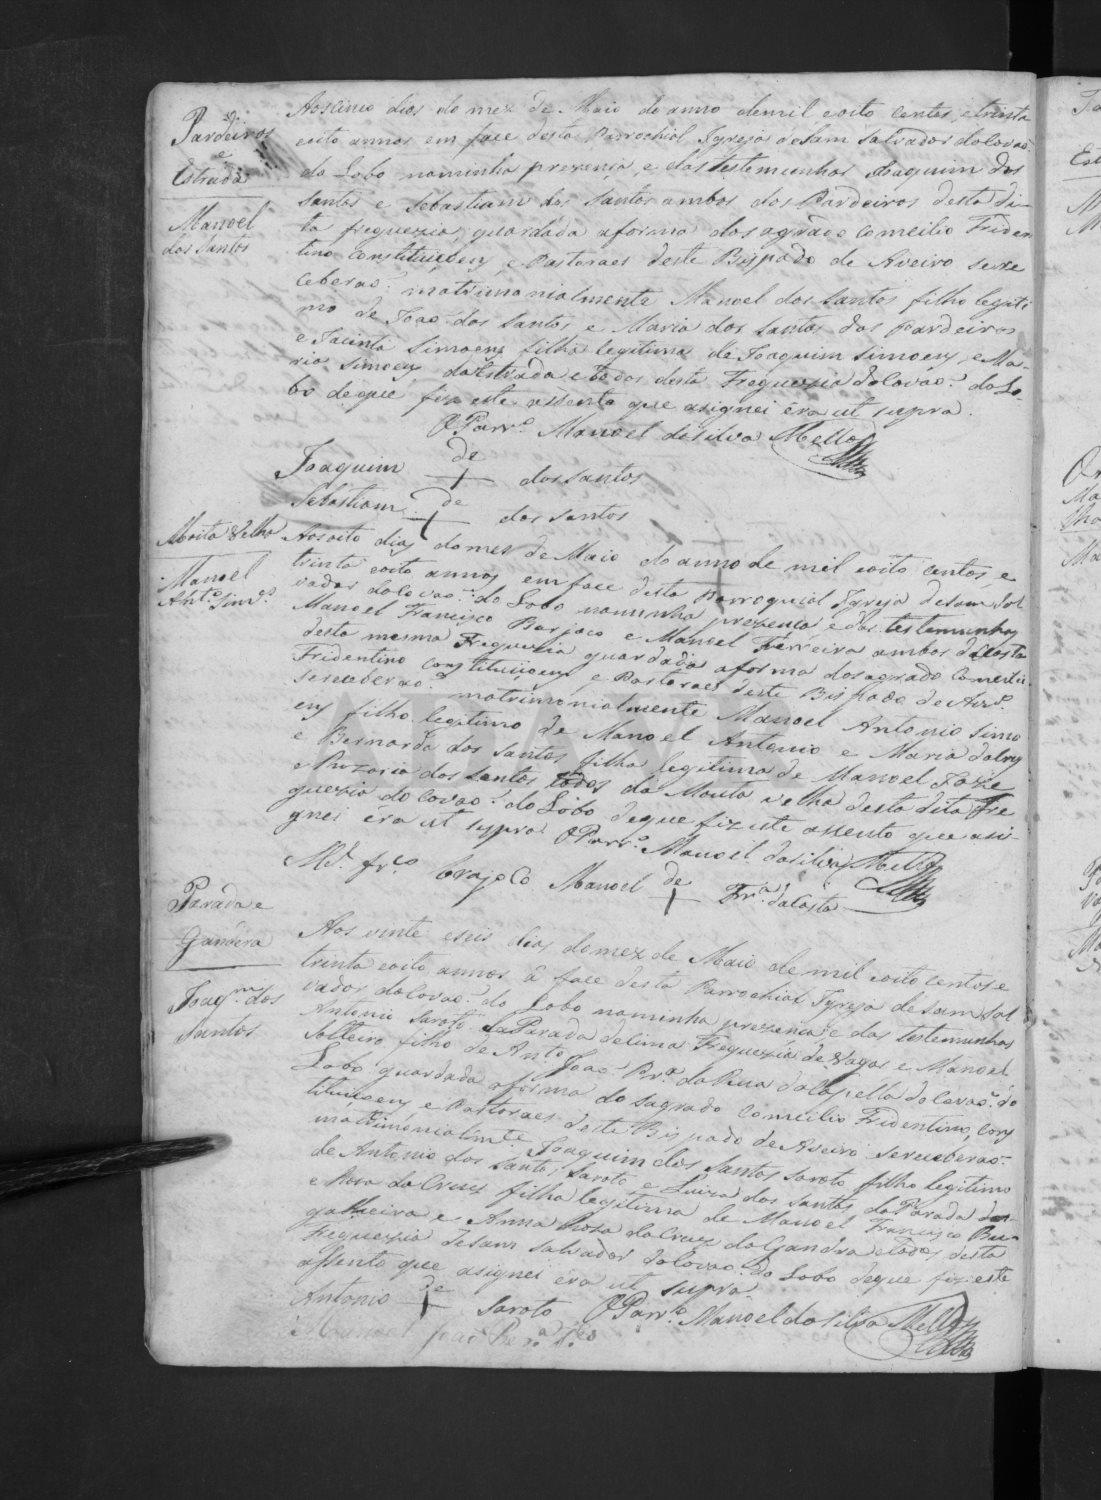 Pardeiros
e
Estrada
Manoel
dos Santos
Aos cinco dias do mez de Maio do anno demil eoito centos etrinta
eoito annos em face desta Parrochial Igreja deSam Salvador doCovaõ
do Lobo naminha prezença, e dastestemunhas Joaquim dos
Santos e Sebastiam dos Santos ambos dos Pardeiros desta di-
ta freguezia, guardada aforma dosagrado Comcilio Triden
tino constituiçoens, e Pastoraes deste Bispado de Aveiro sere
ceberaõ matrimonialmente Manoel dos Santos filho legiti
mo de Joaõ dos Santos e Maria dos Santos dos Pardeiros
e Jacinta Simoens filha legitima de Joaquim Simoens e Ma-
ria Simoens daEstrada e todos desta Freguezia doCovaõ do Lo-
bo deque fiz este assento que asignei éra ut supra.
O Parr.º Manoel daSilva Mello
Joaquim de + dos Santos
Sebastiam de + dos Santos
Moita Velha
Manoel
Ant.º Sim.s
Aos oito dias domes de Maio do anno de mil eoito centos e
trinta eoito annos em face desta Parroquial Igreja deSam Sal
vador doCovaõ do Lobo naminha prezença edas testemunhas
Manoel Francisco Barjoco e Manoel Ferreira ambos daCosta
desta mesma Freguezia guardada aforma dosagrado Comcilio
Tridentino constituiçoens, e Pastoraes deste Bispado de Avr.º
sereceberaõ matrimonialmente Manoel Antonio Simo
ens filho legitimo de Manoel Antonio e Maria
e Bernarda dos Santos filha legitima de Manoel Joze
e Ruzaria dos Santos todos da Mouta velha desta dita Fre
guezia do Covaõ do Lobo deque fiz este assento que asi-
gnei éra ut supra O Parr.º Manoel daSilva Mello
M.el Fr.co Brajoco Manoel de + Fr.ª daCosta
Parada e
Gandera
Joaq.m dos
Santos
Aos vinte eseis dias domez de Maio de mil eoito centos e
trinta eoito annos á face desta Parrochial Igreja deSam Sal
vador doCovaõ do Lobo naminha prezença e das testemunhas
Antonio Saroto daParada deSima Freguezia deVagos e Manoel
Solteiro filho de Ant.º Joaõ Pr.ª da Rua daCapella doCovaõ do
Lobo guardada aforma do sagrado Comcilio Tridentino, cons
tituiçoens, e Pastoraes deste Bispado de Aveiro sereceberaõ
matrimonialm.te Joaquim dos Santos Saroto filho legitimo
de Antonio dos Santos Saroto e Luiza dos Santos da Parada de
e Roza daCruz filha legitima de Manoel Francisco
e Anna Roza daCruz daGandra etodos desta
Freguezia deSam Salvador doCovaõ do Lobo deque fiz este
assento que asignei éra ut supra
Antonio de + Saroto O Parr.º Manoel daSilva Mello
Manoel Joaõ